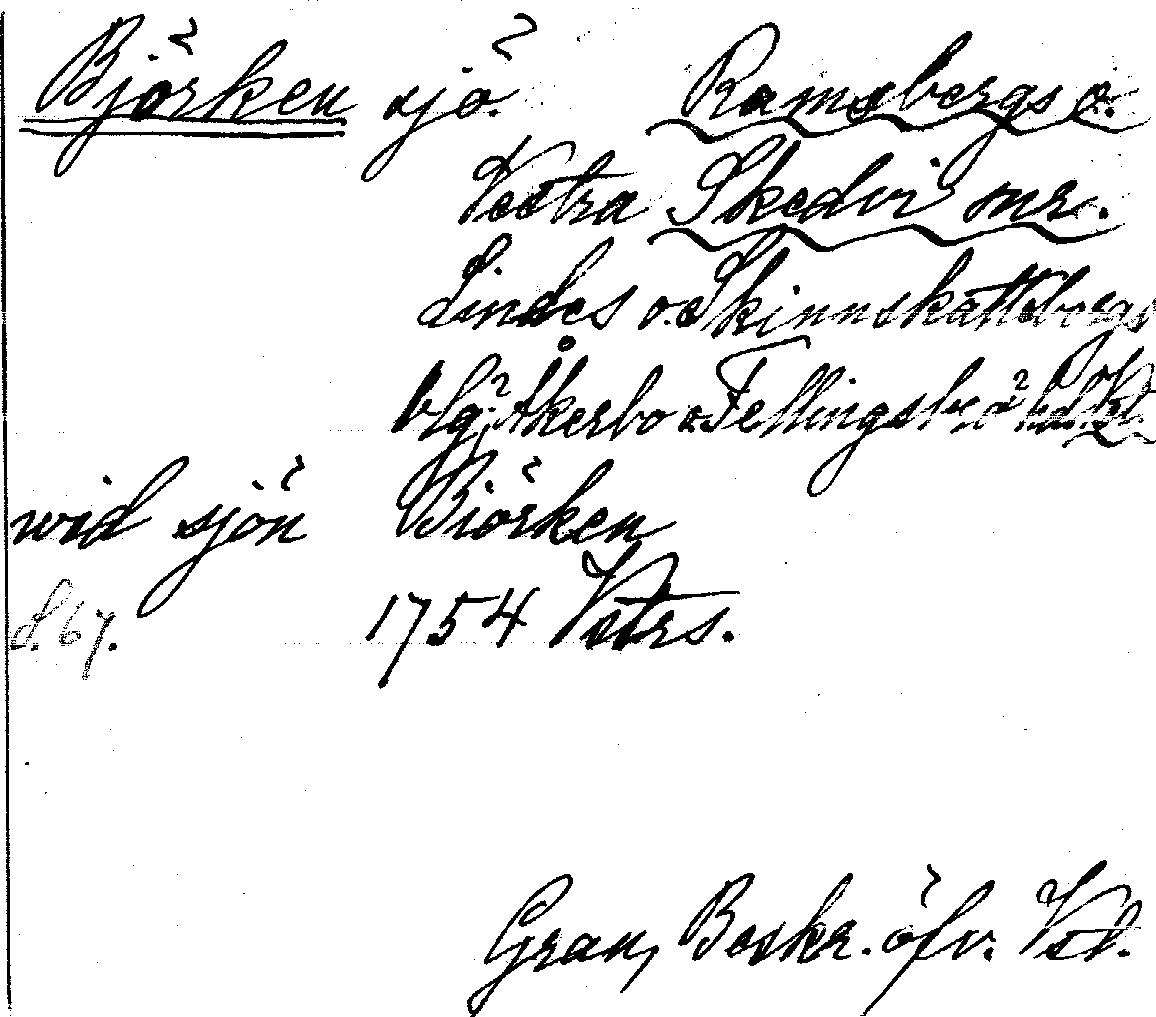 Björken sjö. Ramsbergs o.
Vestra Skedvi snr.
Lindes o. Skinnskattebergs
blg, Åkerbo o. Fellingsbro
wid sjön Biörken
S. 67. 1754 Vstrs.
Grau, Beskr. öfv. Vstl.